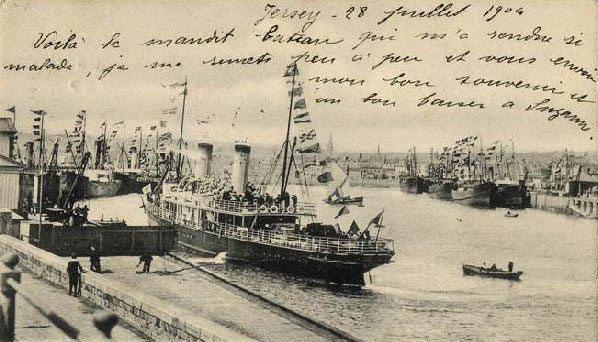 Jersey - 28 juillet 1904
Voilà le maudit bateau qui m'a rendue si
malade, je me remets peu à peu et vous envoie
mon bon souvenir et
un bon baiser à Suzanne.